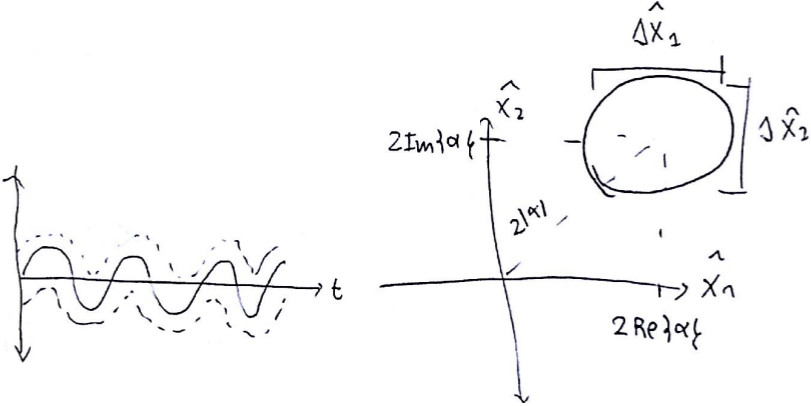 t
ΔX̂₁
X̂₂
2Im{α}
ΔX̂₂
2|α|
X̂₁
2Re{α}